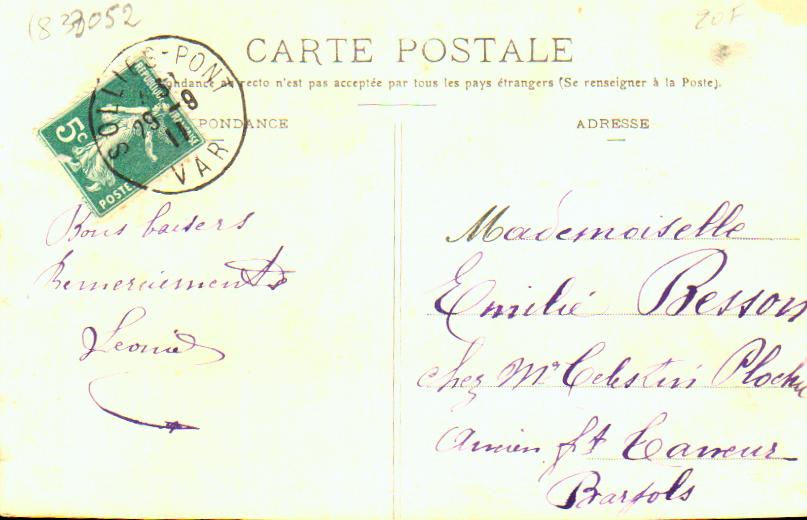 (83) 3052
20F
CARTE POSTALE
ondance au recto n'est pas acceptée par tous les pays étrangers (Se renseigner à la Poste).
PONDANCE
ADRESSE
SOLLIÈS-PONT
29-9
11
VAR
5c
POSTES
Bons baisers
Remerciements
Leonie
Mademoiselle
Emilie Besson
chez Mr Celestin
Ancien ft Tanneur
Barjols